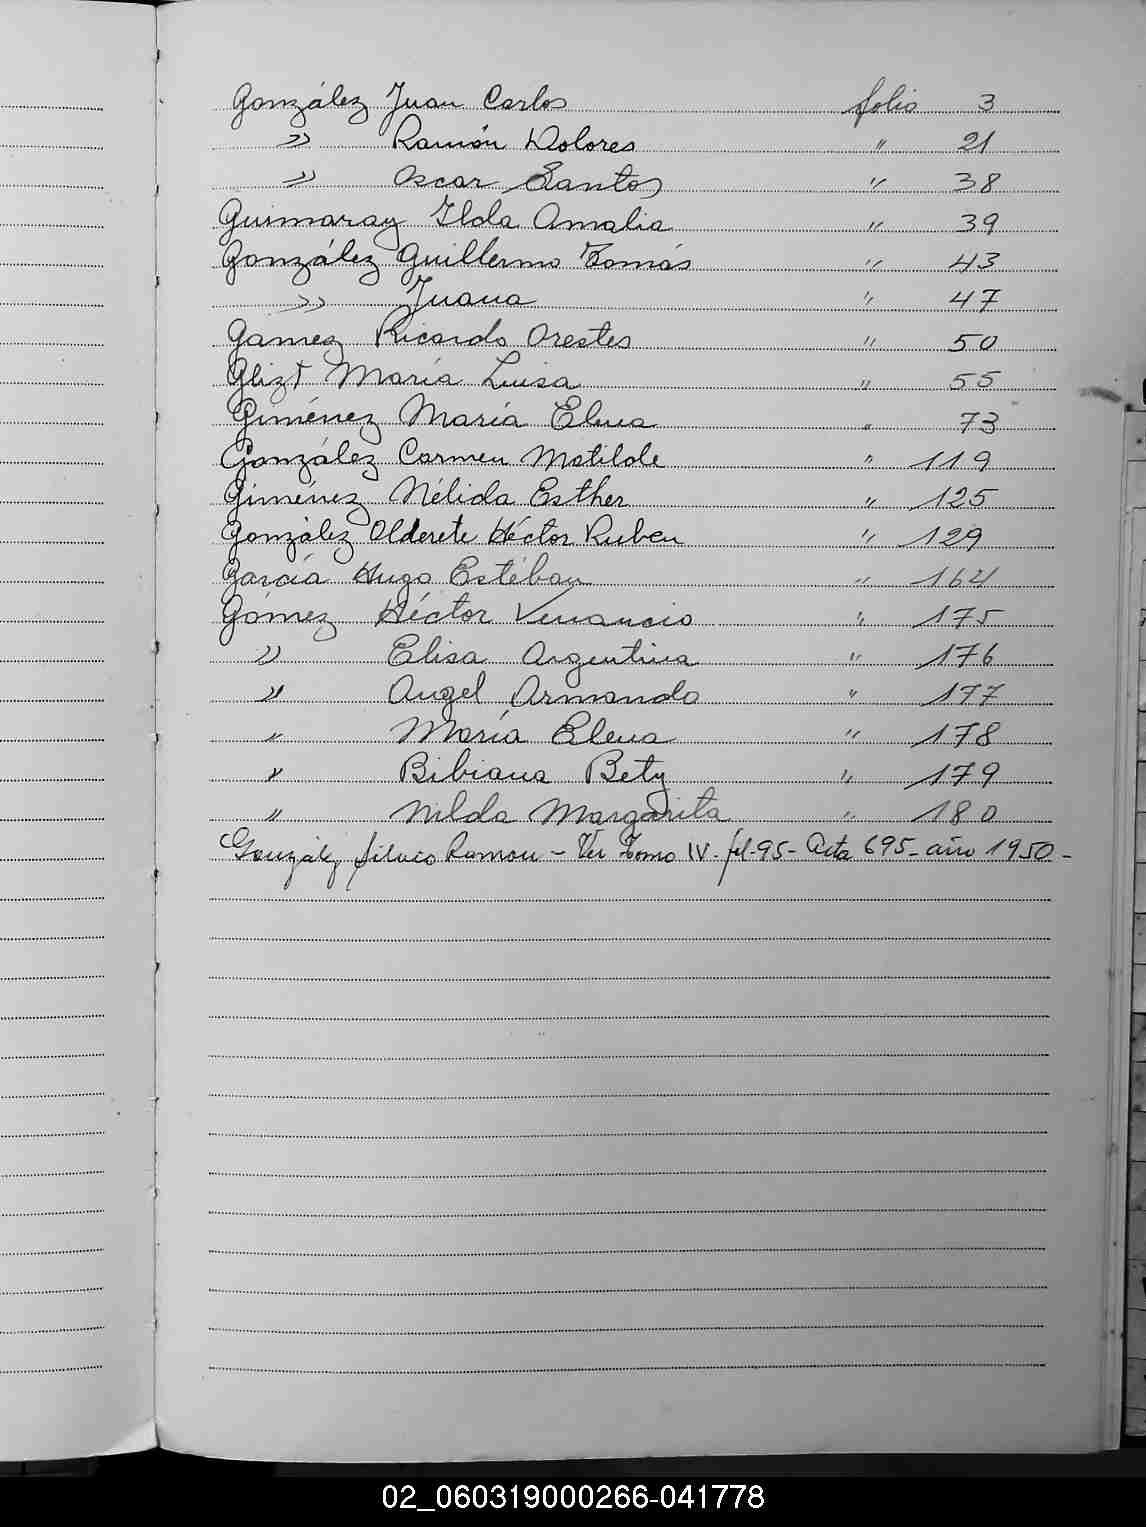 González Juan Carlos folio 3
» Ramón Dolores " 21
» Oscar Santos " 38
Guimaray Ilda Amalia " 39
González Guillermo Tomás " 43
» Juana " 47
Gamez Ricardo Orestes " 50
Glizt María Luisa " 55
Giménez María Elena " 73
González Carmen Matilde " 119
Giménez Nélida Esther " 125
González Alderete Héctor Ruben " 129
García Hugo Estéban " 164
Gómez Héctor Venancio " 175
» Elisa Argentina " 176
» Angel Armando " 177
" María Elena " 178
" Bibiana Bety " 179
" Nilda Margarita " 180
González Silvio Ramon - Ver Tomo IV - fol-95- Acta 695- año 1950-
02_060319000266-041778